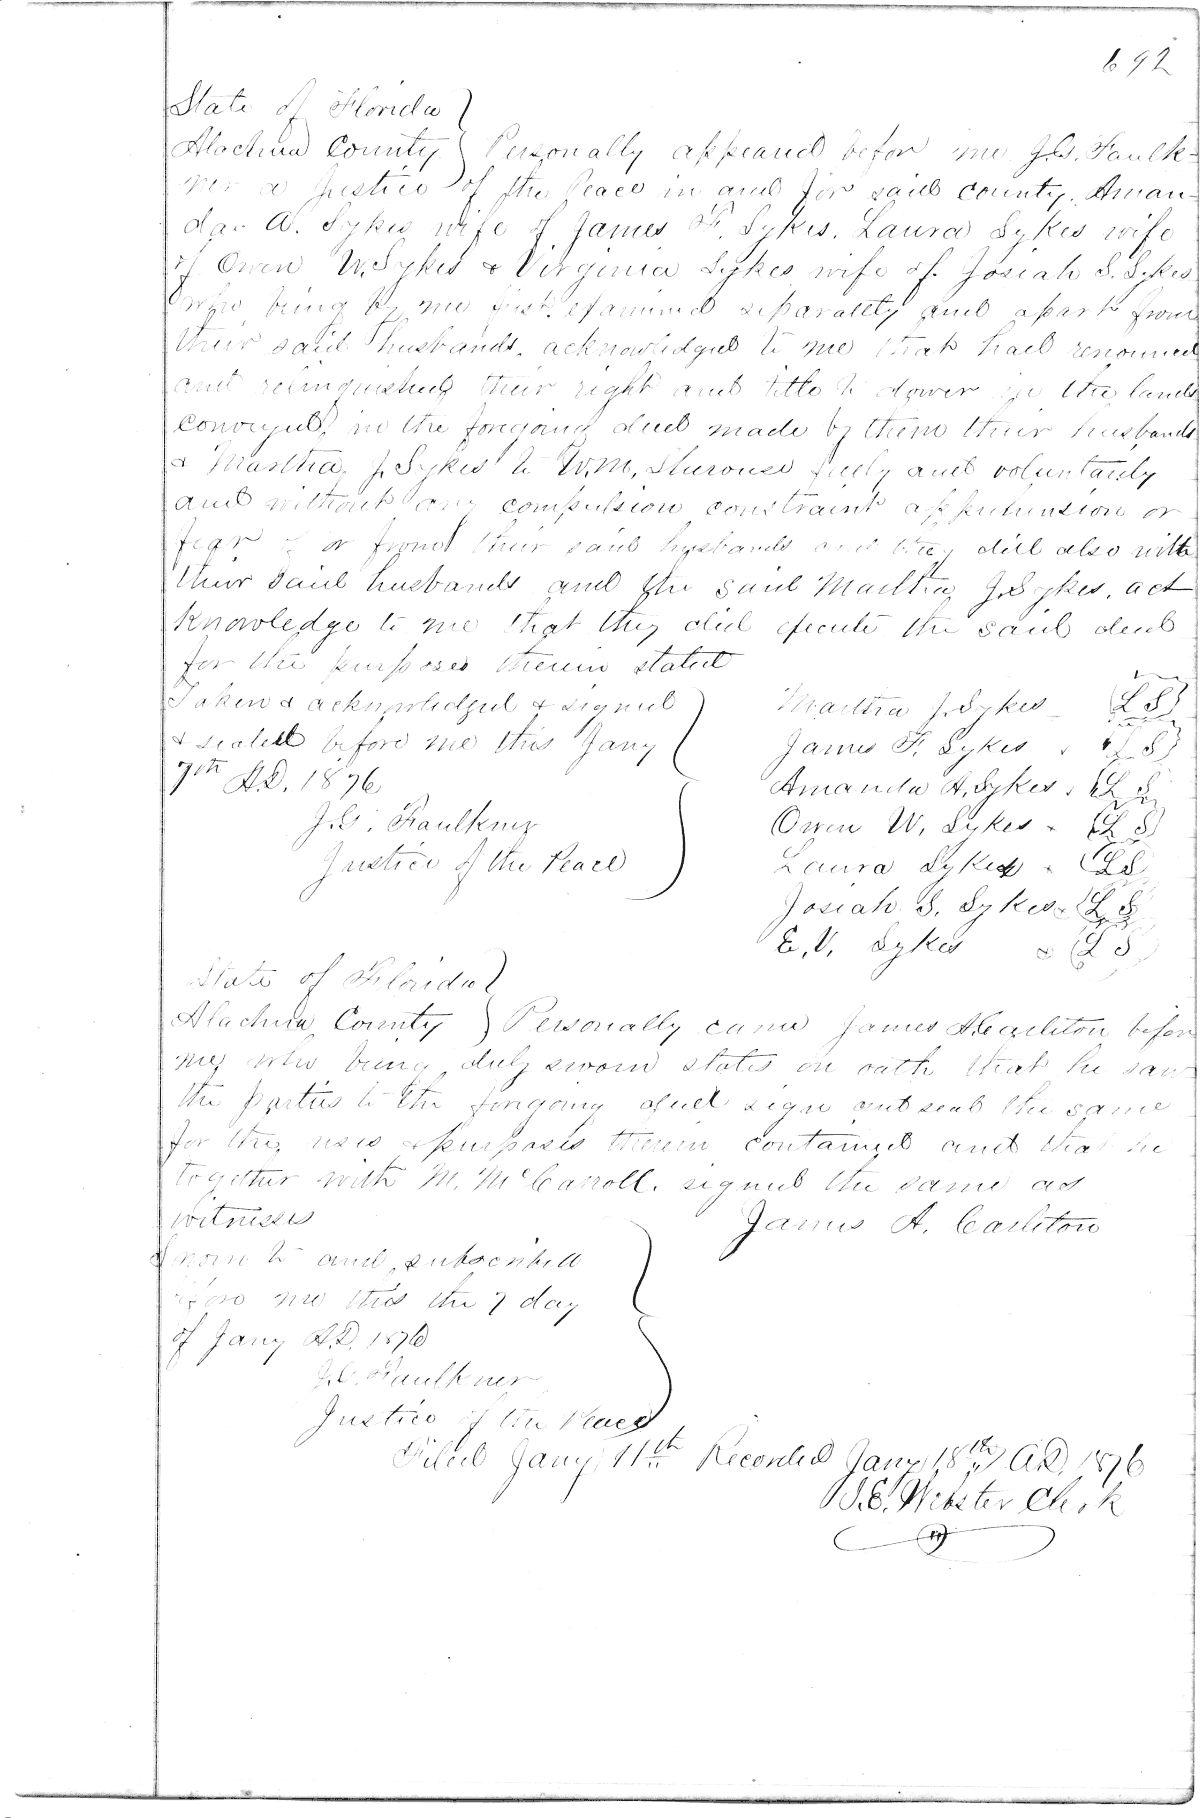 692
State of Florida
Alachua County Personally appeared before me J.G. Faulk-
ner a Justice of the Peace in and for said county. Aman-
da A. Sykes wife of James F. Sykes. Laura Sykes wife
of Owen W. Sykes & Virginia Sykes wife of Josiah S. Sykes
who being by me first examined separately and apart from
their said husbands, acknowledged to me that had renounced
and relinquished their right and title to dower in the lands
conveyed in the foregoing deed made by them their husbands
& Martha J. Sykes to W.M. freely and voluntarily
and without any compulsion constraint apprehension or
fear of or from their said husbands and they did also with
their said husbands and the said Martha J. Sykes, ack
knowledge to me that they did execute the said deed
for the purposes therein stated
Taken & acknowledged & signed
& sealed before me this Jany
7th A.D. 1876
J.G. Faulkner
Justice of the Peace
Martha J. Sykes (L S)
James F. Sykes (L S)
Amanda A. Sykes (L S)
Owen W. Sykes (L S)
Laura Sykes (L S)
Josiah S. Sykes (L S)
E.V. Sykes (L S)
State of Florida
Alachua County Personally came James A. Carleton before
me who being duly sworn states on oath that he saw
the parties to the foregoing deed sign and seal the same
for the uses & purposes therein contained and that he
together with M. McCarroll. signed the same as
witnesses
James A. Carleton
Sworn to and subscribed
before me this the 7 day
of Jany A.D. 1876
J.G. Faulkner
Justice of the Peace
Filed Jany 11th Recorded Jany 18th A.D. 1876
J.E. Webster Clerk